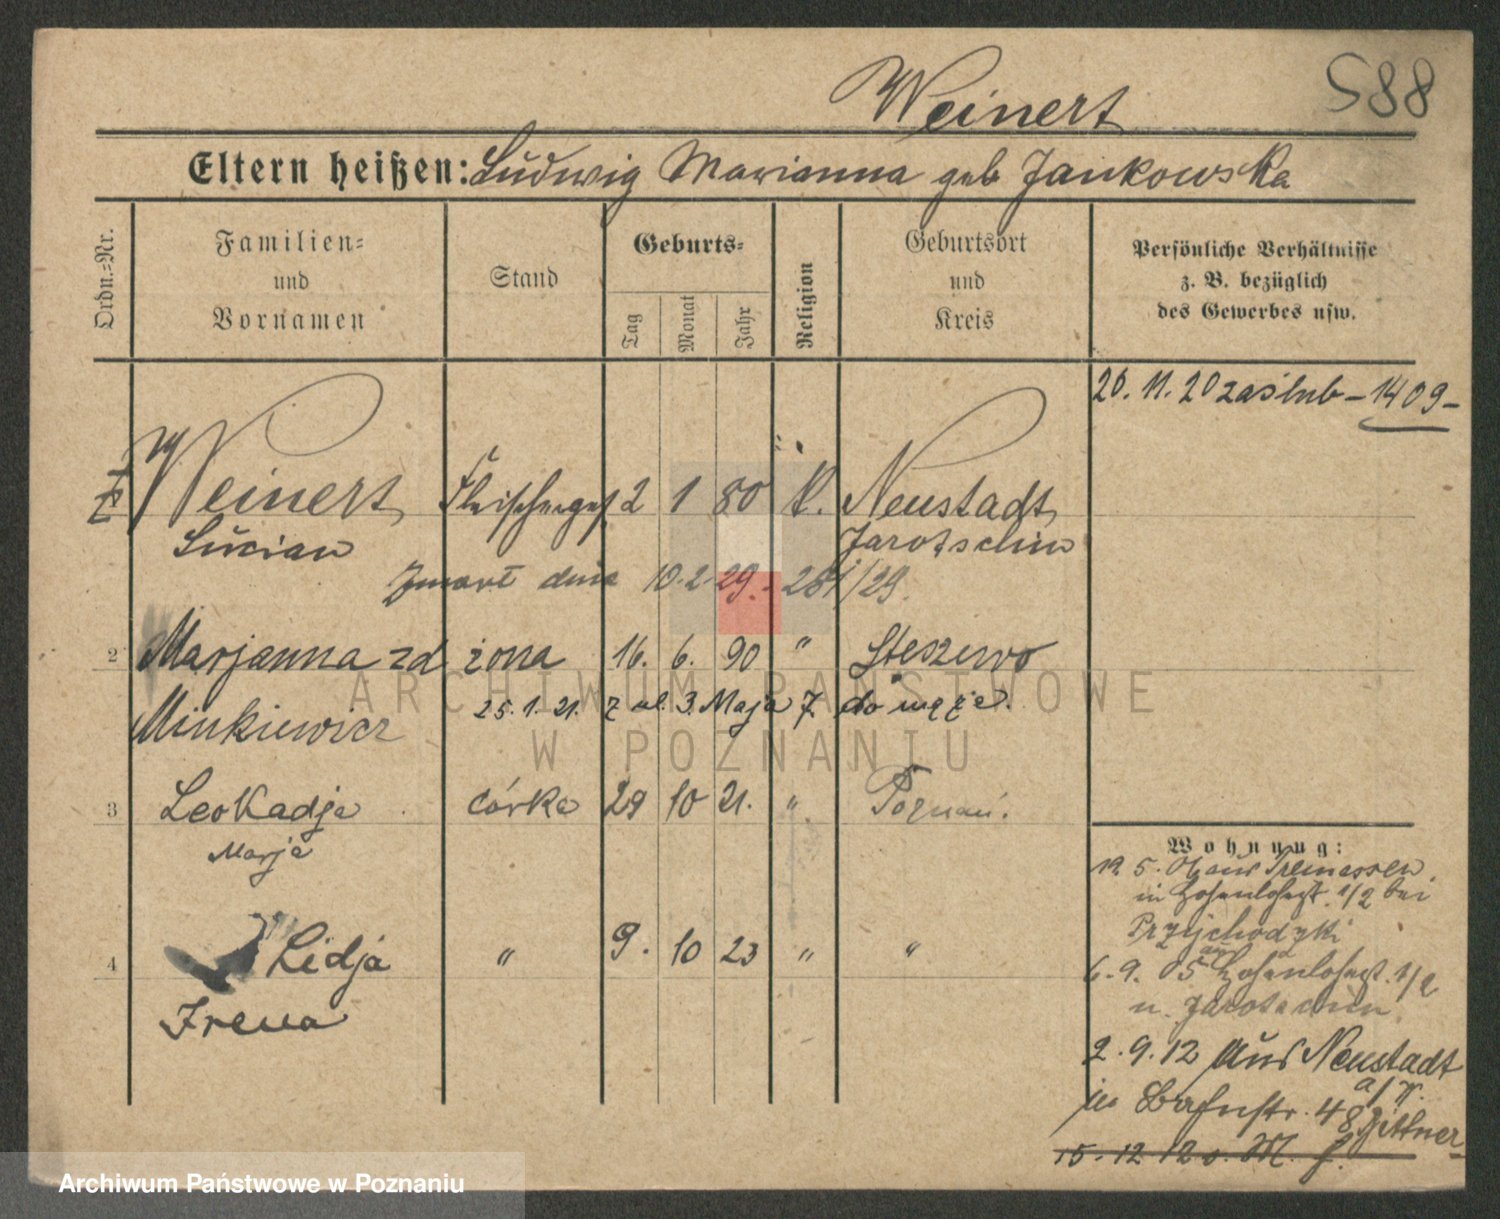 Weinert 588
Eltern heißen: Ludwig Marianna geb Jankowska
Ordn.=Nr.
Familien=
und
Vornamen
Stand
Geburts=
Tag
Monat
Jahr
Religion
Geburtsort
und
Kreis
Persönliche Verhältnisse
z. B. bezüglich
des Gewerbes usw.
26. 11. 20 zaślub – 1409 –
Weinert Fleischerges 2 1 80 K. Neustadt
Lucian Jarotschin
Zmarł dnia 10.2.29. – 281/29.
2 Marjanna zd żona 16. 6. 90 " Stęszewo
Minkiewicz 25.1.21. z ul. 3. Maja 7 do męża.
3 Leokadja córka 29 10 21. " Poznań.
Marja
4 Lidja " 9. 10 23 " "
Irena
Wohnung:
12 5. 02 aus Tremessen
in Hohenlohest. 1/2 bei
Przychodzki
6. 9. 05 Hohenlohest. 1/2
n. Jarotschin
2. 9. 12 aus Neustadt
a/W.
in Bahnstr. 48 Zittner
15. 12 12 v. M.
ARCHIWUM PAŃSTWOWE
W POZNANIU
Archiwum Państwowe w Poznaniu